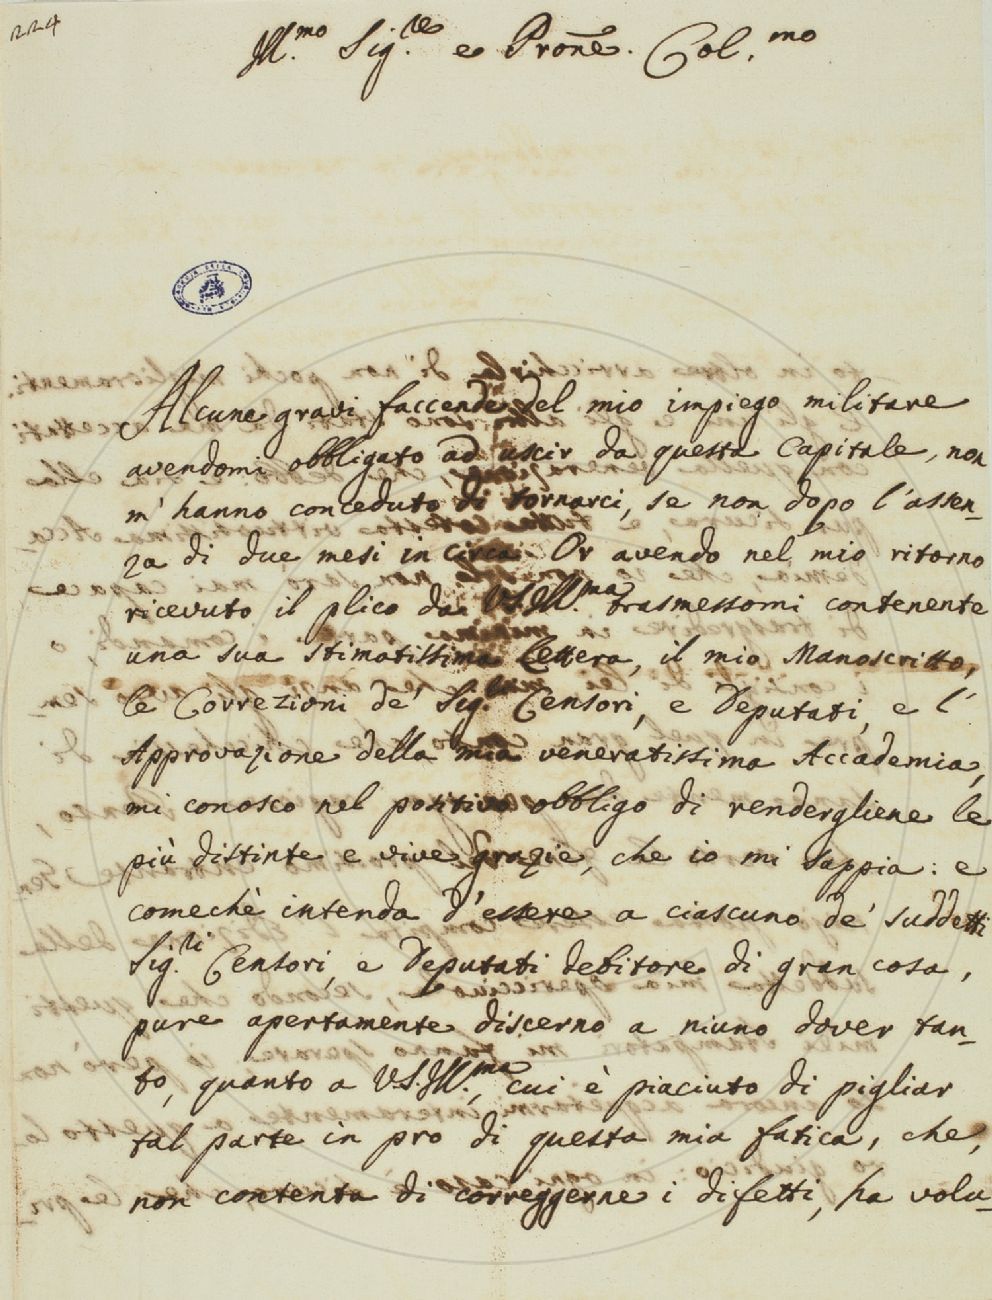 224
Ill.mo Sig.re e Prone. Col.mo
Alcune gravi faccende del mio impiego militare
avendomi obbligato ad uscir da questa Capitale, non
m'hanno conceduto di tornarci, se non dopo l'assen-
za di due mesi in circa. Or avendo nel mio ritorno
ricevuto il plico da V.S. Ill.ma trasmessomi contenente
una sua stimatissima Lettera, il mio Manoscritto,
le Correzioni de' Sig.ri Censori, e Deputati, e l'
Approvazione della mia veneratissima Accademia,
mi conosco nel positivo obbligo di rendergliene le
più distinte e vive grazie, che io mi sappia: e
comechè intenda d'essere a ciascuno de' suddetti
Sig.ri Censori, e Deputati debitore di gran cosa,
pure apertamente discerno a niuno dover tan-
to, quanto a V.S. Ill.ma, cui è piaciuto di pigliar
tal parte in pro di questa mia fatica, che,
non contenta di correggerne i difetti, ha volu-